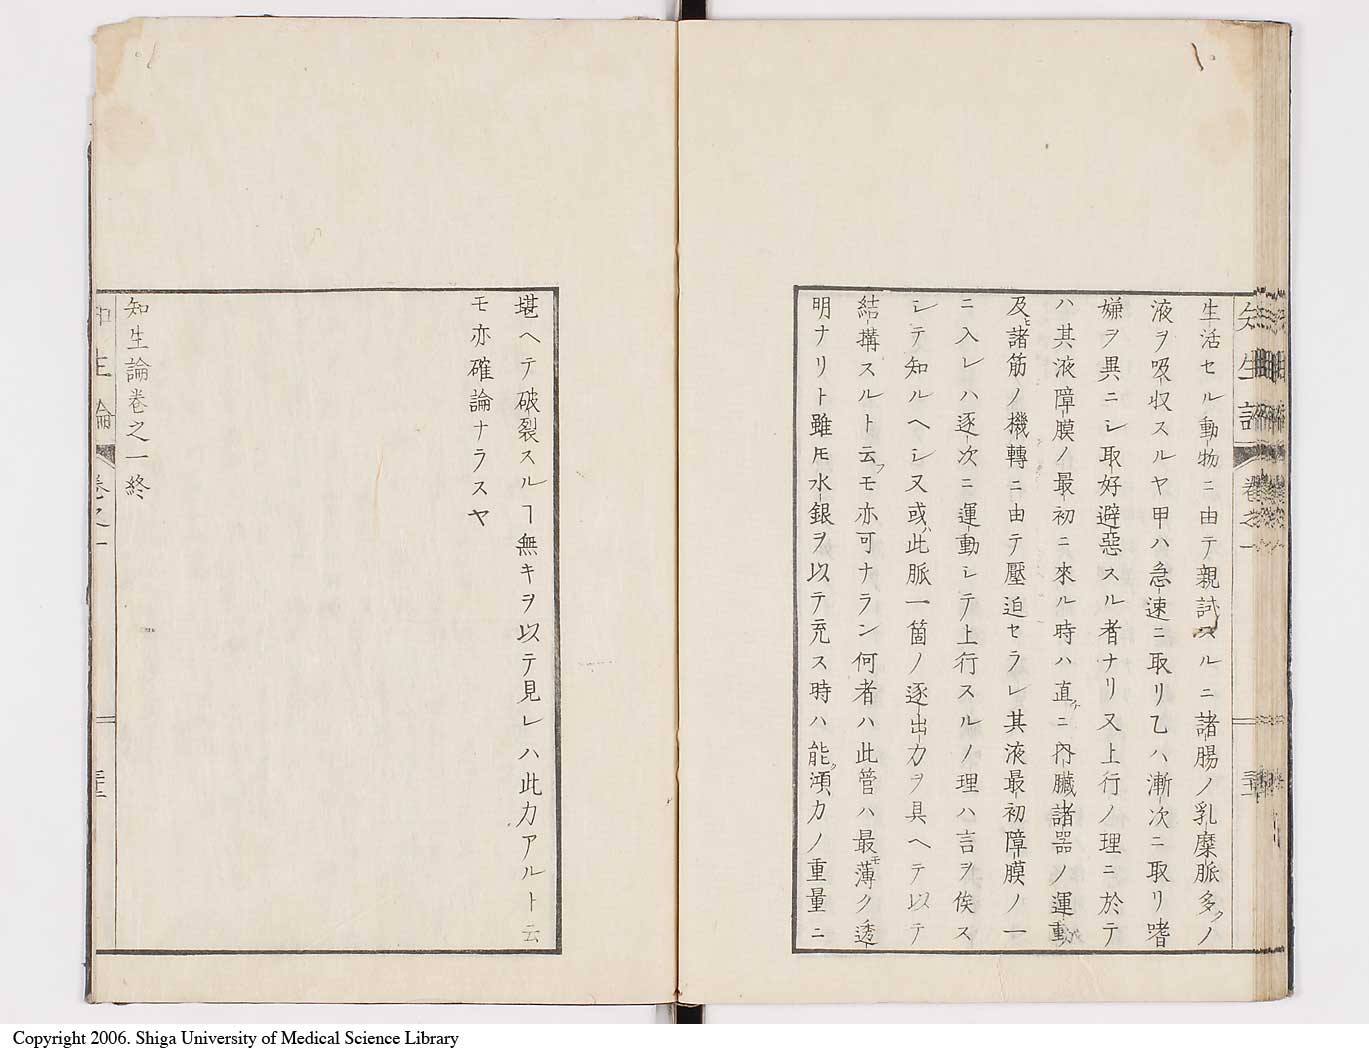 生活セル動物ニ由テ親試スルニ諸腸ノ乳糜脈多クノ
液ヲ吸収スルヤ甲ハ急速ニ取リ乙ハ漸次ニ取リ嗜
嫌ヲ異ニシ取好避惡スル者ナリ又上行ノ理ニ於テ
ハ其液障膜ノ最初ニ來ル時ハ直チニ内臓諸器ノ運動
及ヒ諸筋ノ機轉ニ由テ壓迫セラレ其液最初障膜ノ一
ニ入レハ逐次ニ運動シテ上行スルノ理ハ言ヲ俟ス
シテ知ルヘシ又或ハ此脈一箇ノ逐出力ヲ具ヘテ以テ
結搆スルト云フモ亦可ナラン何者ハ此管ハ最モ薄ク透
明ナリト雖モ水銀ヲ以テ充ス時ハ能ク湏力ノ重量ニ
堪ヘテ破裂スルヿ無キヲ以テ見レハ此力アルト云
モ亦確論ナラスヤ
知生論卷之一終
知生論 卷之一
Copyright 2006. Shiga University of Medical Science Library